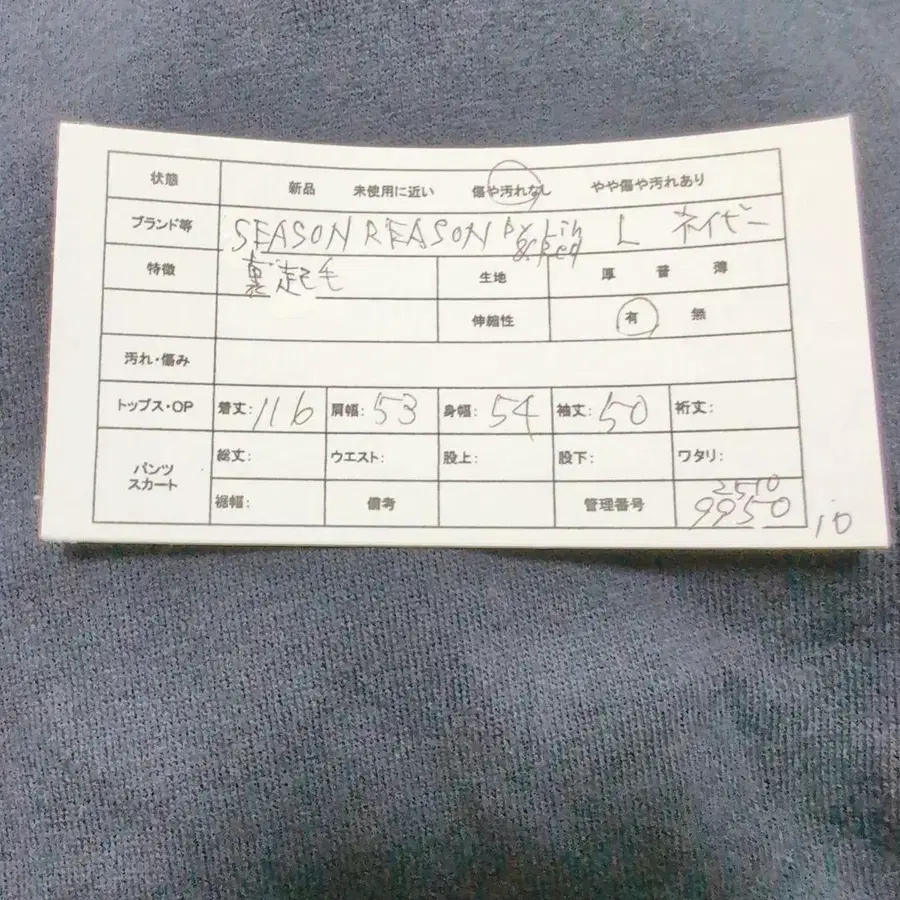 状態 新品 未使用に近い 傷や汚れなし やや傷や汚れあり
ブランド等 SEASON REASON by Lin & Red L ネイビー
特徴 裏起毛 生地 厚 普 薄
伸縮性 有 無
汚れ・傷み
トップス・OP 着丈: 116 肩幅: 53 身幅: 54 袖丈: 50 裄丈:
パンツ スカート
総丈: ウエスト: 股上: 股下: ワタリ:
裾幅: 備考 管理番号 2510 9950
10